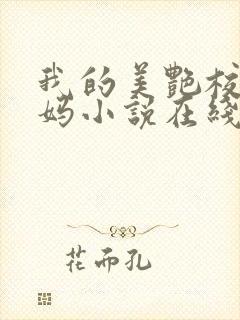 我的美艷校
妈小説在綫
花而孔